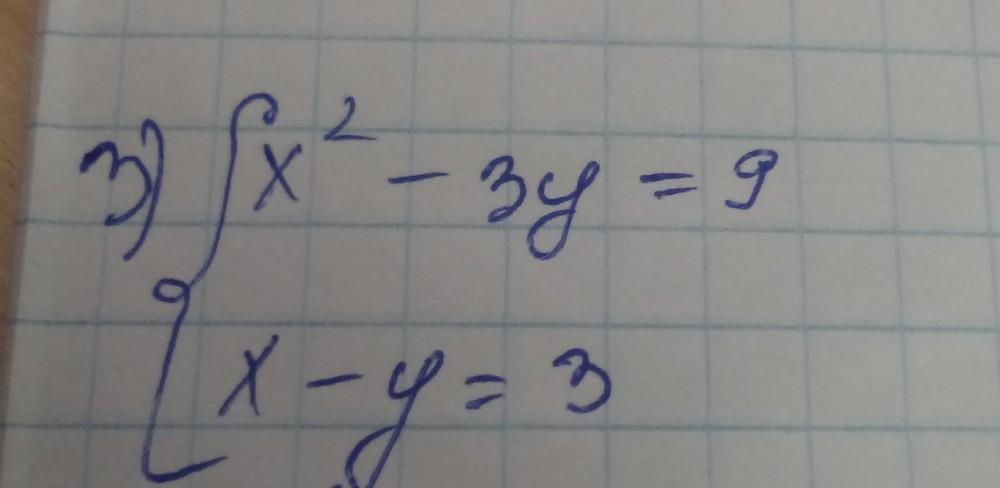 3) { x² - 3y = 9
x - y = 3